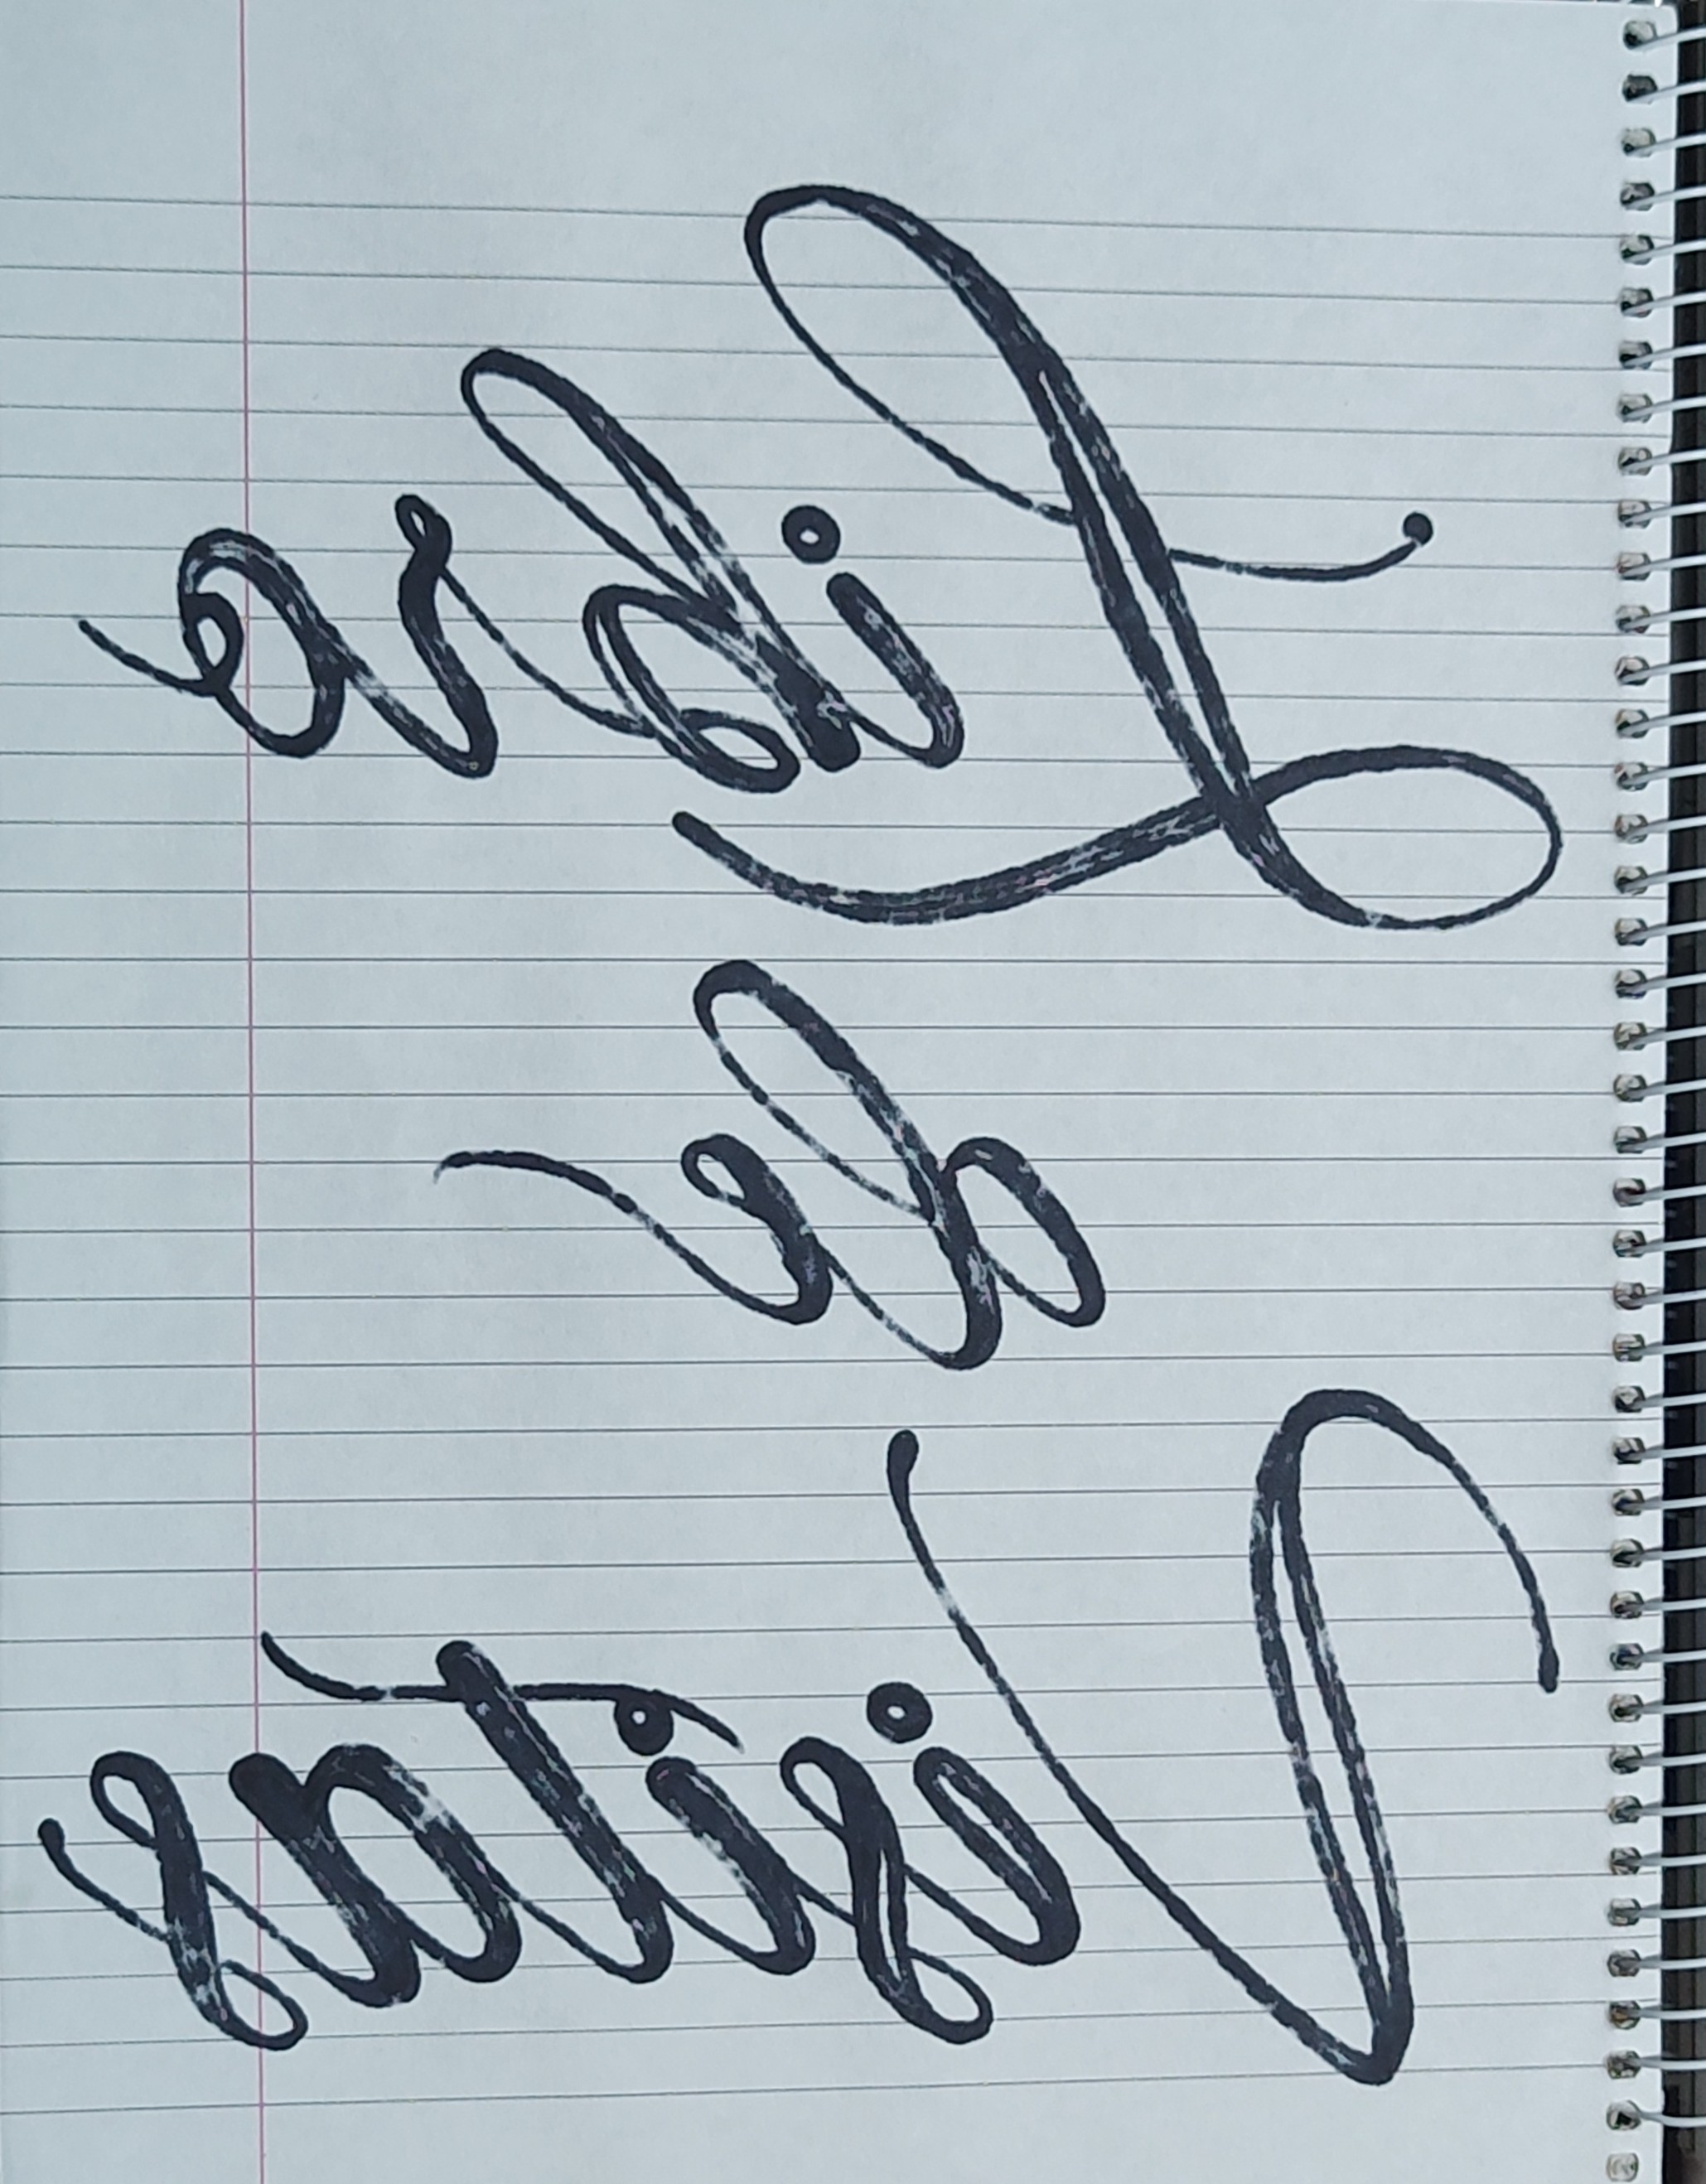 Libro
de
Visitas